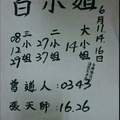 白小姐
6月11.14.16日
大小姐 14
二小姐 27 37
三小姐 08 12 29
曾道人:0343
張天師:16.26